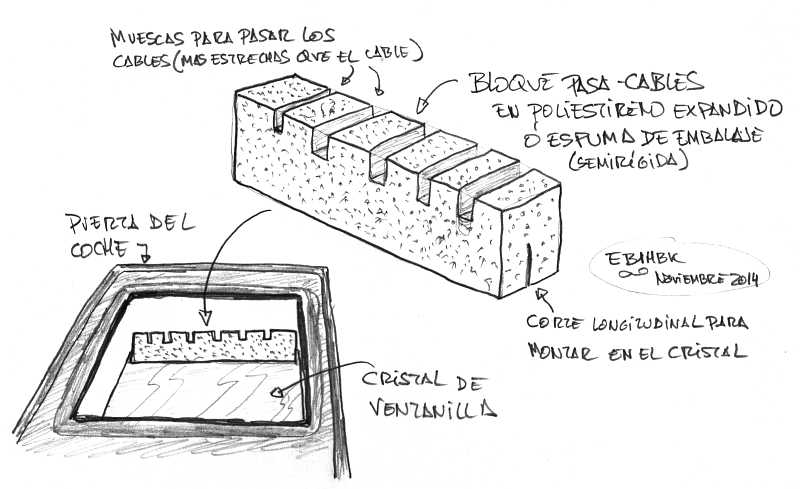 MUESCAS PARA PASAR LOS
CABLES (MAS ESTRECHAS QUE EL CABLE)
BLOQUE PASA-CABLES
EN POLIESTIRENO EXPANDIDO
O ESPUMA DE EMBALAJE
(SEMIRÍGIDA)
PUERTA DEL
COCHE
EB1HBK
NOVIEMBRE 2014
CORTE LONGITUDINAL PARA
MONTAR EN EL CRISTAL
CRISTAL DE
VENTANILLA